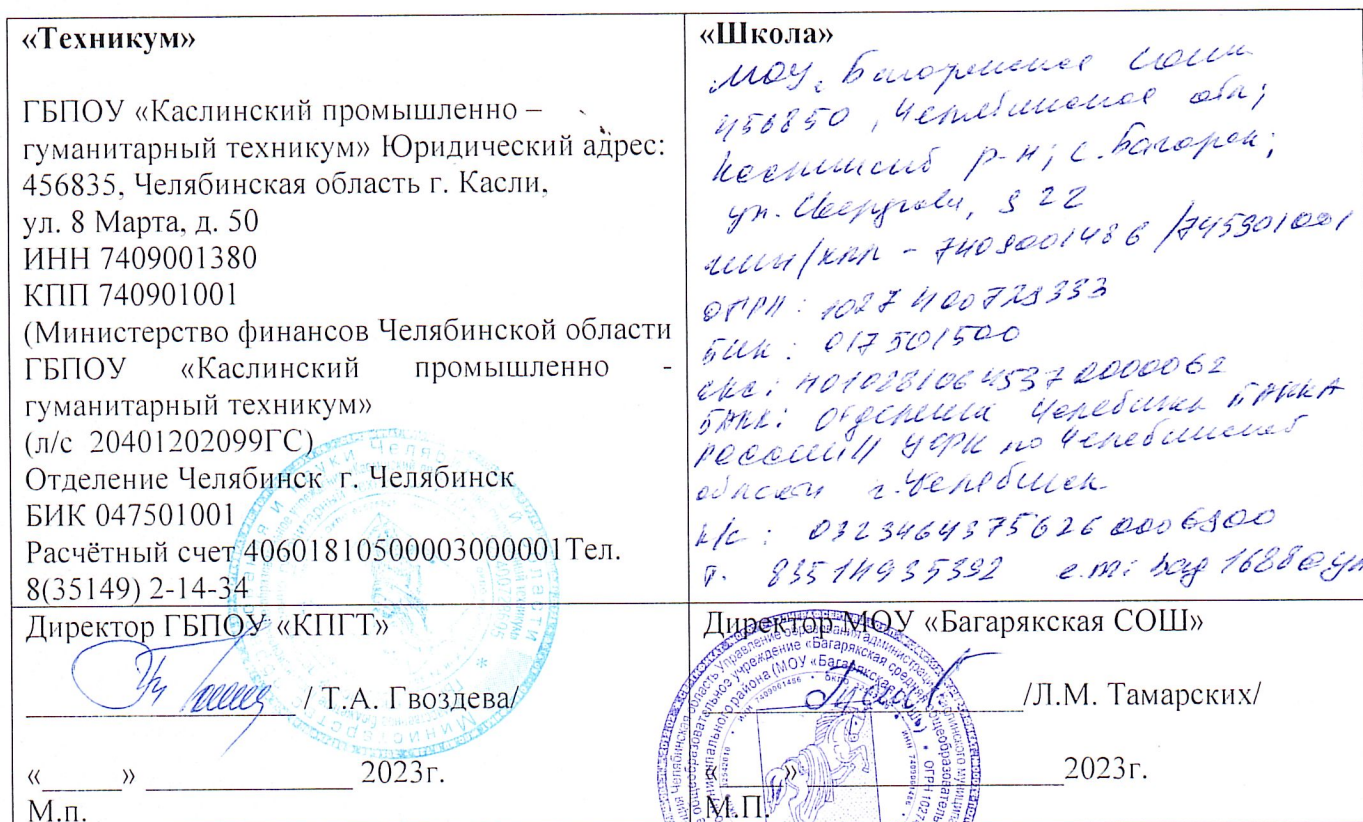 «Техникум»
ГБПОУ «Каслинский промышленно –
гуманитарный техникум» Юридический адрес:
456835, Челябинская область г. Касли,
ул. 8 Марта, д. 50
ИНН 7409001380
КПП 740901001
(Министерство финансов Челябинской области
ГБПОУ «Каслинский промышленно -
гуманитарный техникум»
(л/с 20401202099ГС)
Отделение Челябинск г. Челябинск
БИК 047501001
Расчётный счет 40601810500003000001Тел.
8(35149) 2-14-34
«Школа»
МОУ "Багарякская СОШ"
456850, Челябинская обл;
Каслинский р-н; с. Багаряк;
ул. Свердлова, 22
ИНН/КПП - 7409001486 /745901001
ОГРН: 1027400729333
БИК: 017501500
ЕКС: 40102810645370000062
БАНК: Отделение Челябинск БАНКА
РОССИИ// УФК по Челябинской
области г. Челябинск
К/с: 03234643756260006900
т. 83514935392
Директор ГБПОУ «КПГТ»
/ Т.А. Гвоздева/
«______» ______________ 2023г.
М.п.
Директор МОУ «Багарякская СОШ»
/Л.М. Тамарских/
«______» ______________2023г.
М.П.